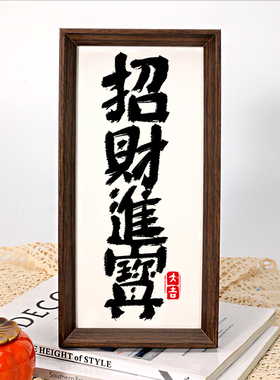 招財進寶
大吉
DECOR
E HEIGHT of STYLE
Southern